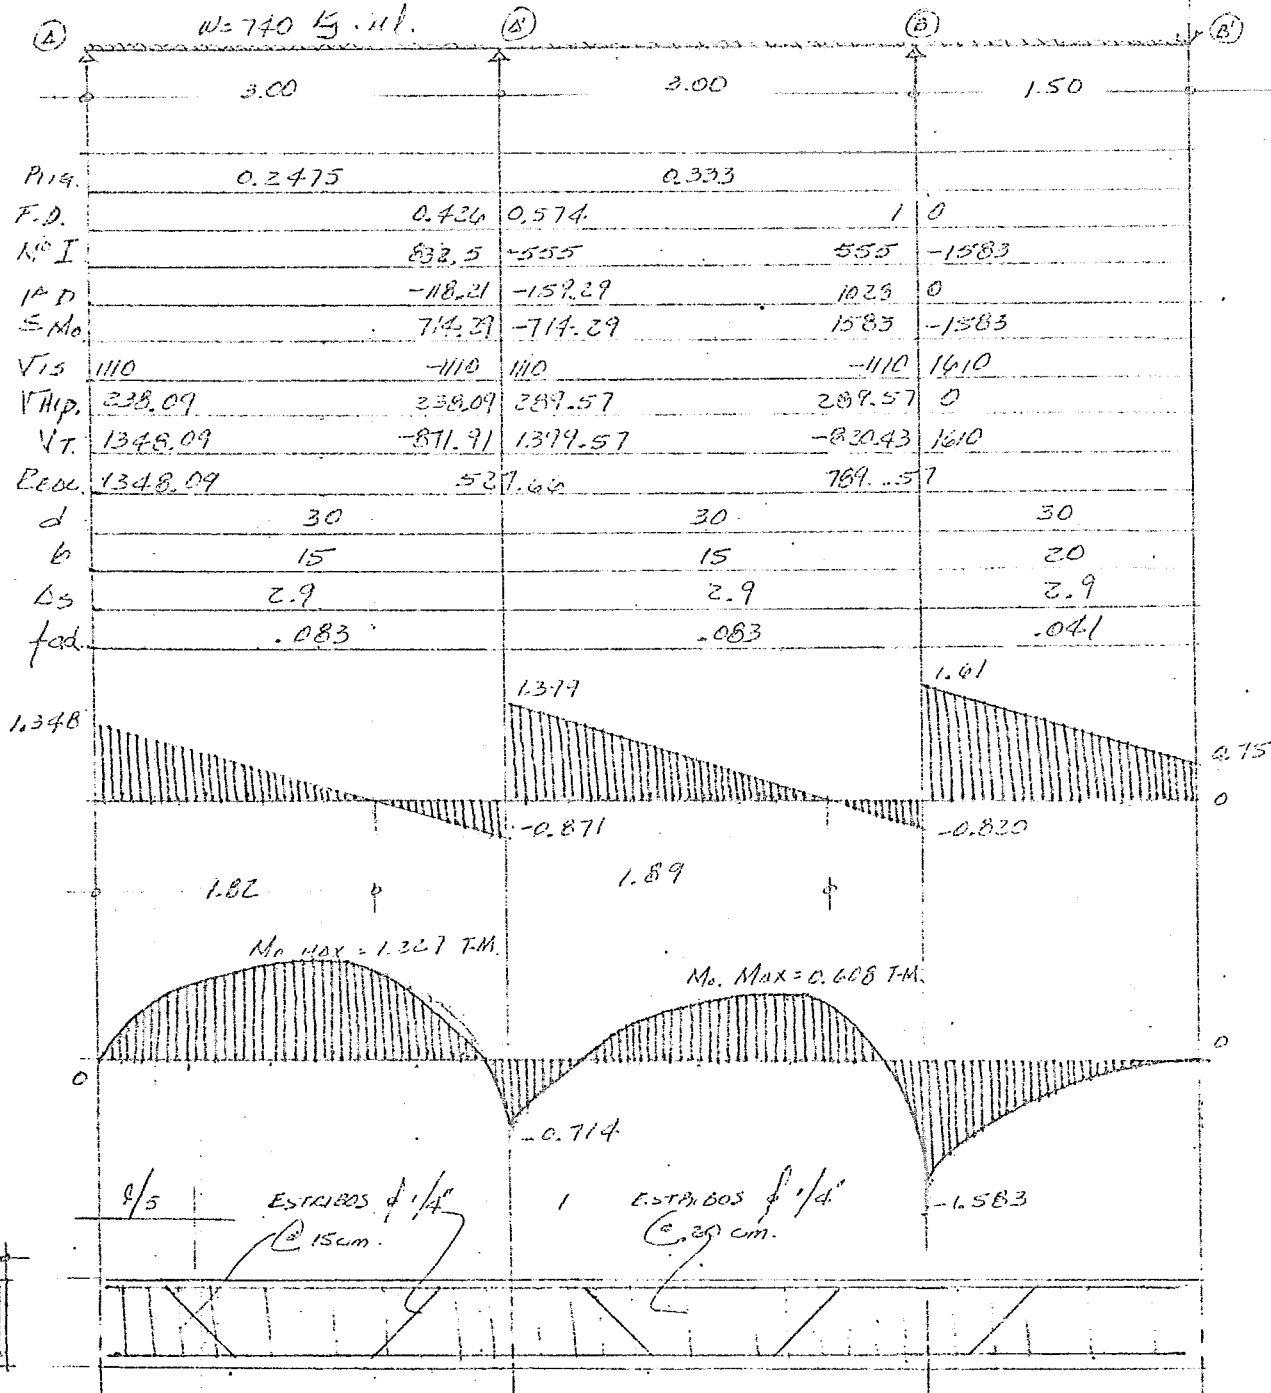 A W=740 Kg.ml. A' B B'
3.00 3.00 1.50
Rig. 0.2475 0.333
F.D. 0.426 0.574 1 0
Mº I 832.5 -555 555 -1583
1ª D -118.21 -159.29 1028 0
Σ Mo. 714.29 -714.29 1583 -1583
Vis 1110 -1110 1110 -1110 1610
VHip. 238.09 238.09 289.57 289.57 0
VT. 1348.09 -871.91 1399.57 -820.43 1610
Reac. 1348.09 527.66 789.57
d 30 30 30
b 15 15 20
As 2.9 2.9 2.9
fad. .083 .083 .041
1.348 1.399 1.61
0.75
0
-0.871 -0.820
1.82 1.89
Mo Max = 1.227 T-M.
Mo. Max = 0.608 T-M.
0 0
-0.714
-1.583
l/5 ESTRIBOS φ 1/4" 1 ESTRIBOS φ 1/4"
@ 15cm. @ 20 cm.